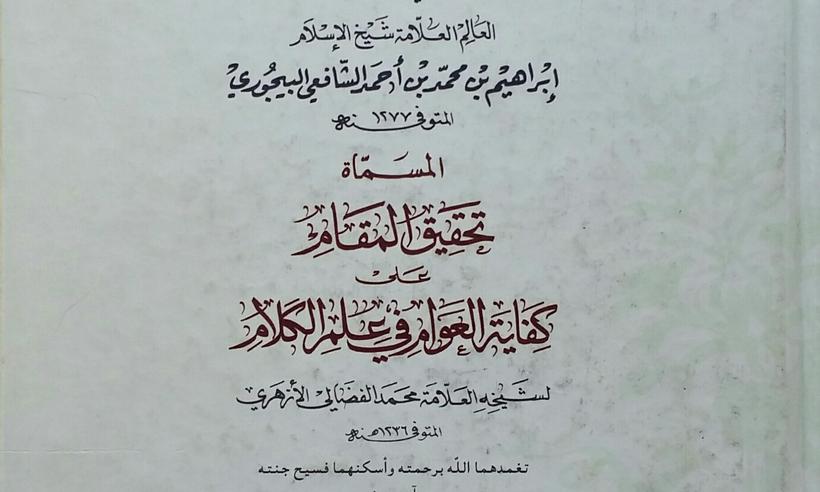 العالم العلّامة شَيْخ الإسْلَام
إبْراهيْم بْن محمّد بْن أحمَد الشّافعي البيجُوري
المتوفى سنة ١٢٧٧ هـ
المسَمّاة
تَحْقِيق المَقَام
عَلى
كِفَايَة العَوَام فِي عِلم الكَلَام
لشَيخِهِ العَلّامَة محمَد الفضَالي الأزهَري
المتوفى سنة ١٢٣٦ هـ
تغمدهما اللّه برحمته وأسكنهما فسيح جنته